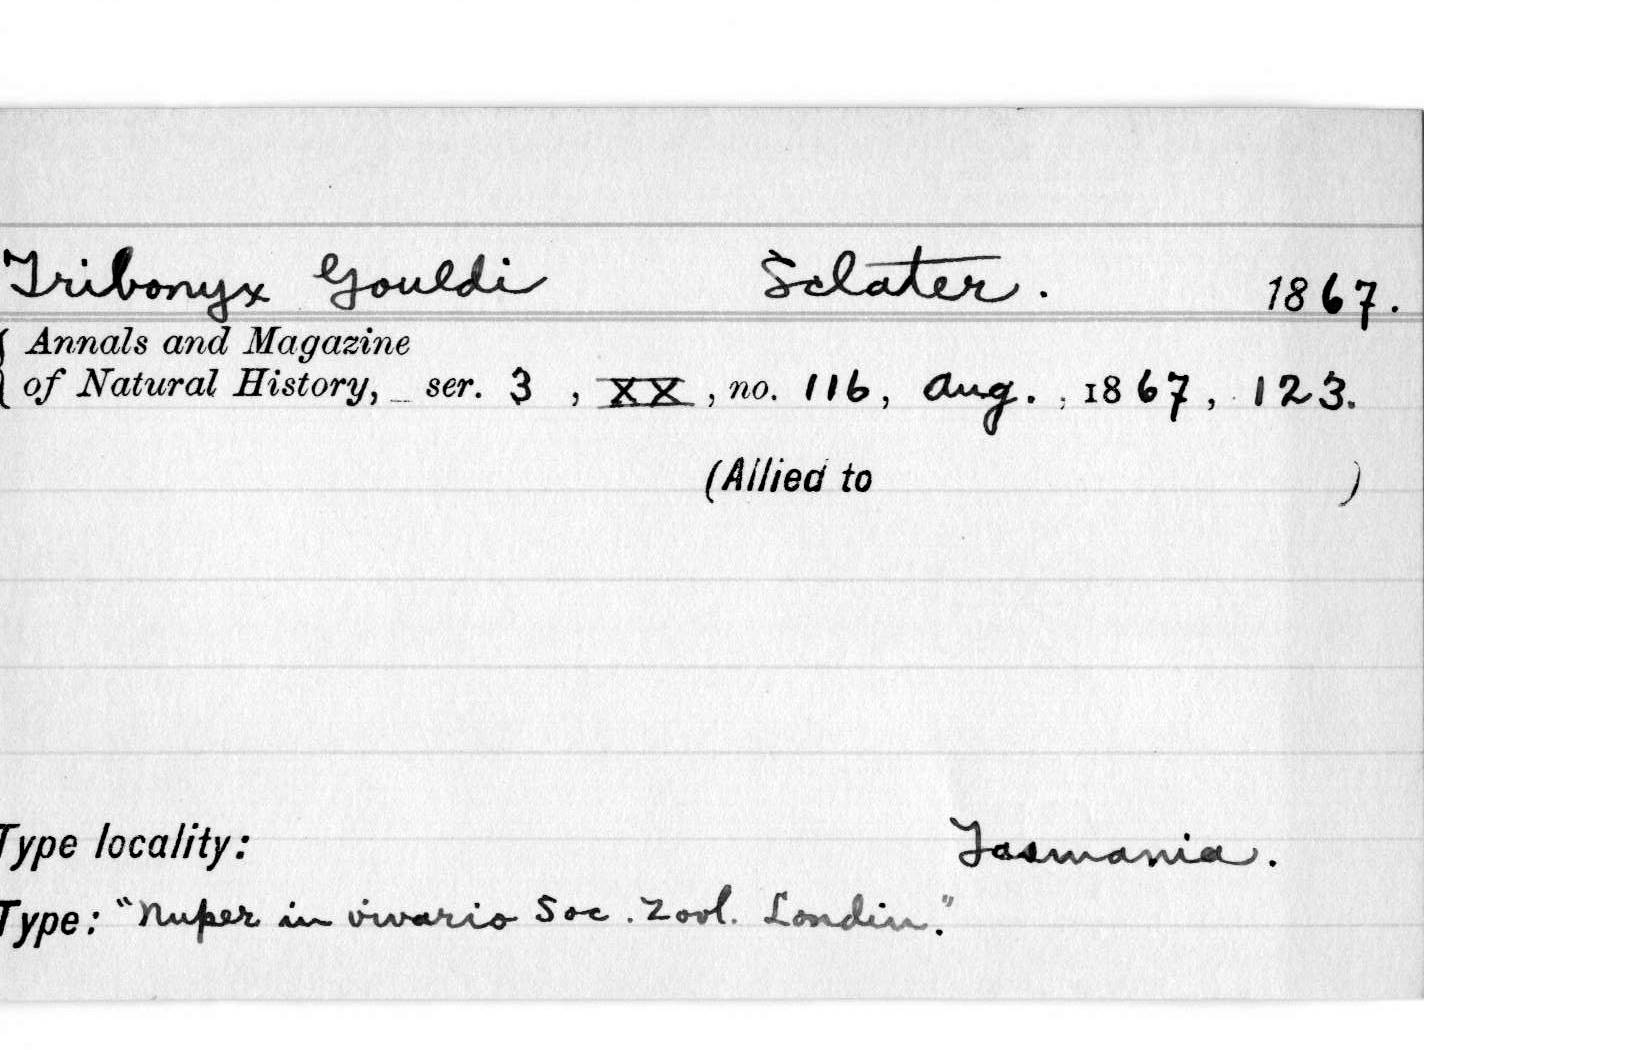 Tribonyx Gouldi Sclater. 1867.
Annals and Magazine
of Natural History, ser. 3, XX, no. 116, Aug., 1867, 123.
(Allied to )
Type locality: Tasmania.
Type: "Nuper in vivario Soc. Zool. Londin."